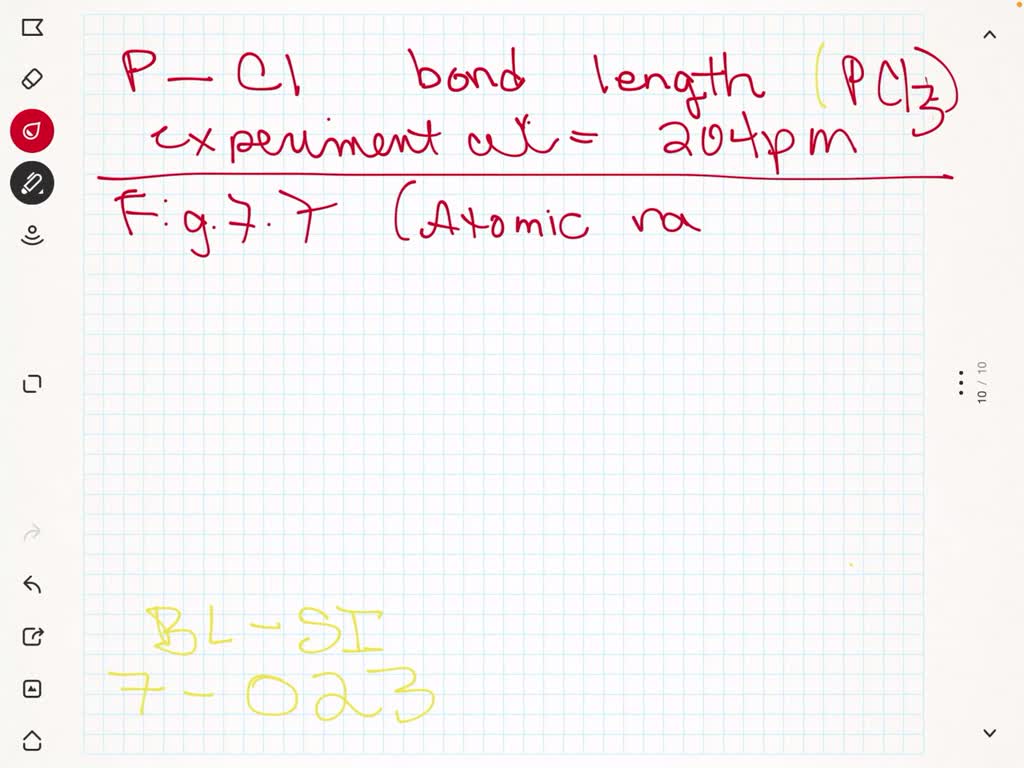 P - Cl bond length (PCl3)
experiment al = 204pm
Fig. 7.7 (Atomic ra
BL-SI
7-023
10 / 10